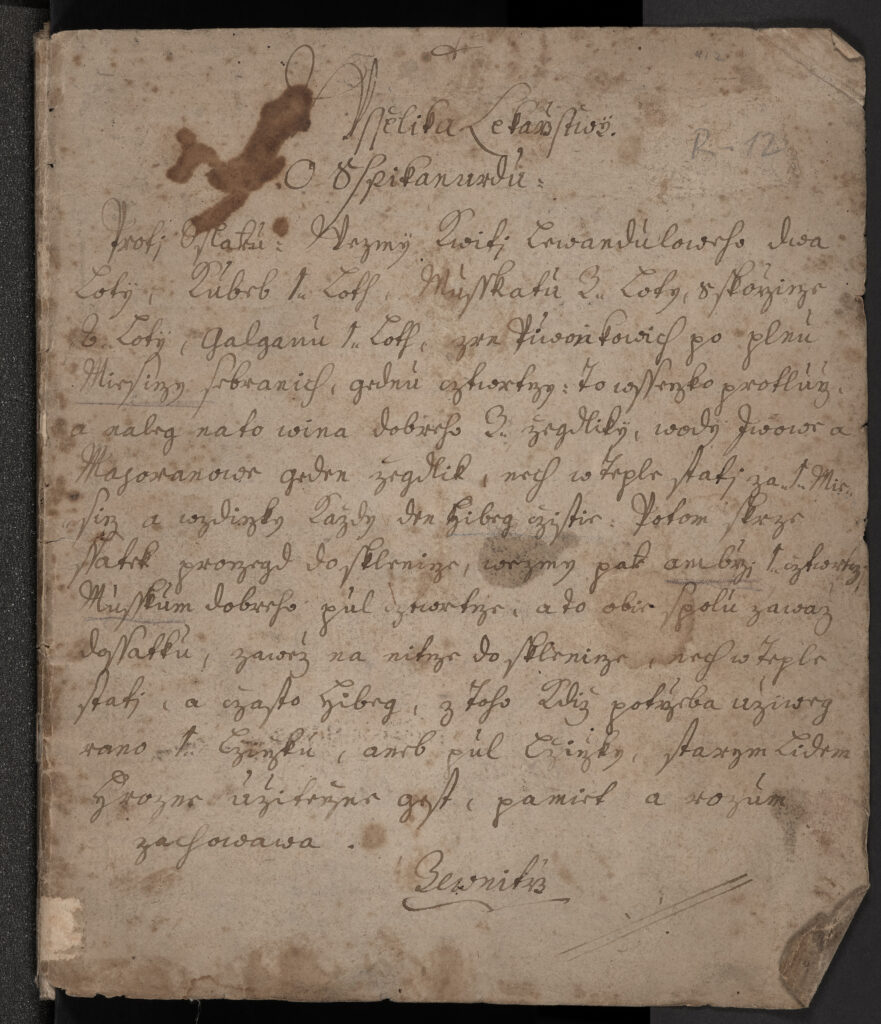 Wsselika Lekarstwÿ.
R-12
O Sspikanurdu:
Protj Sslaku: Wezmÿ Kwitj Lewanduloweho dwa
Lotÿ, Kubeb 1. Loth, Musskatu 3. Loty, Skorzicze
2. Lotÿ, Galganu 1. Loth, zrn Piwonkowich po plnu
Miesiczy sebranich, gednu cztwrtczy: To wsseczko protlucz,
a naleg na to wina dobreho 3. zegdliky, wody Iwowe a
Majoranowe geden zegdlik, nech w Teple statj za 1. Mie-
sicz a wzdiczky Kazdy den Hibeg czistie: Potom skrze
ssatek proczegd do sklenicze, wezmy pak ambrj 1. cztwrtcz,
Musskum dobreho pul cztwrtcze, a to obie spolu zawaz
do ssatku, zawez na nitcze do sklenicze, nech w Teple
statj, a czasto Hibeg, z Toho Kdiz potrzeba uziweg
rano 1. Lziczku, aneb pul Lziczky, starym Lidem
Hrozne uziteczne gest, pamiet a rozum
zachowawa.
Zewnitrz